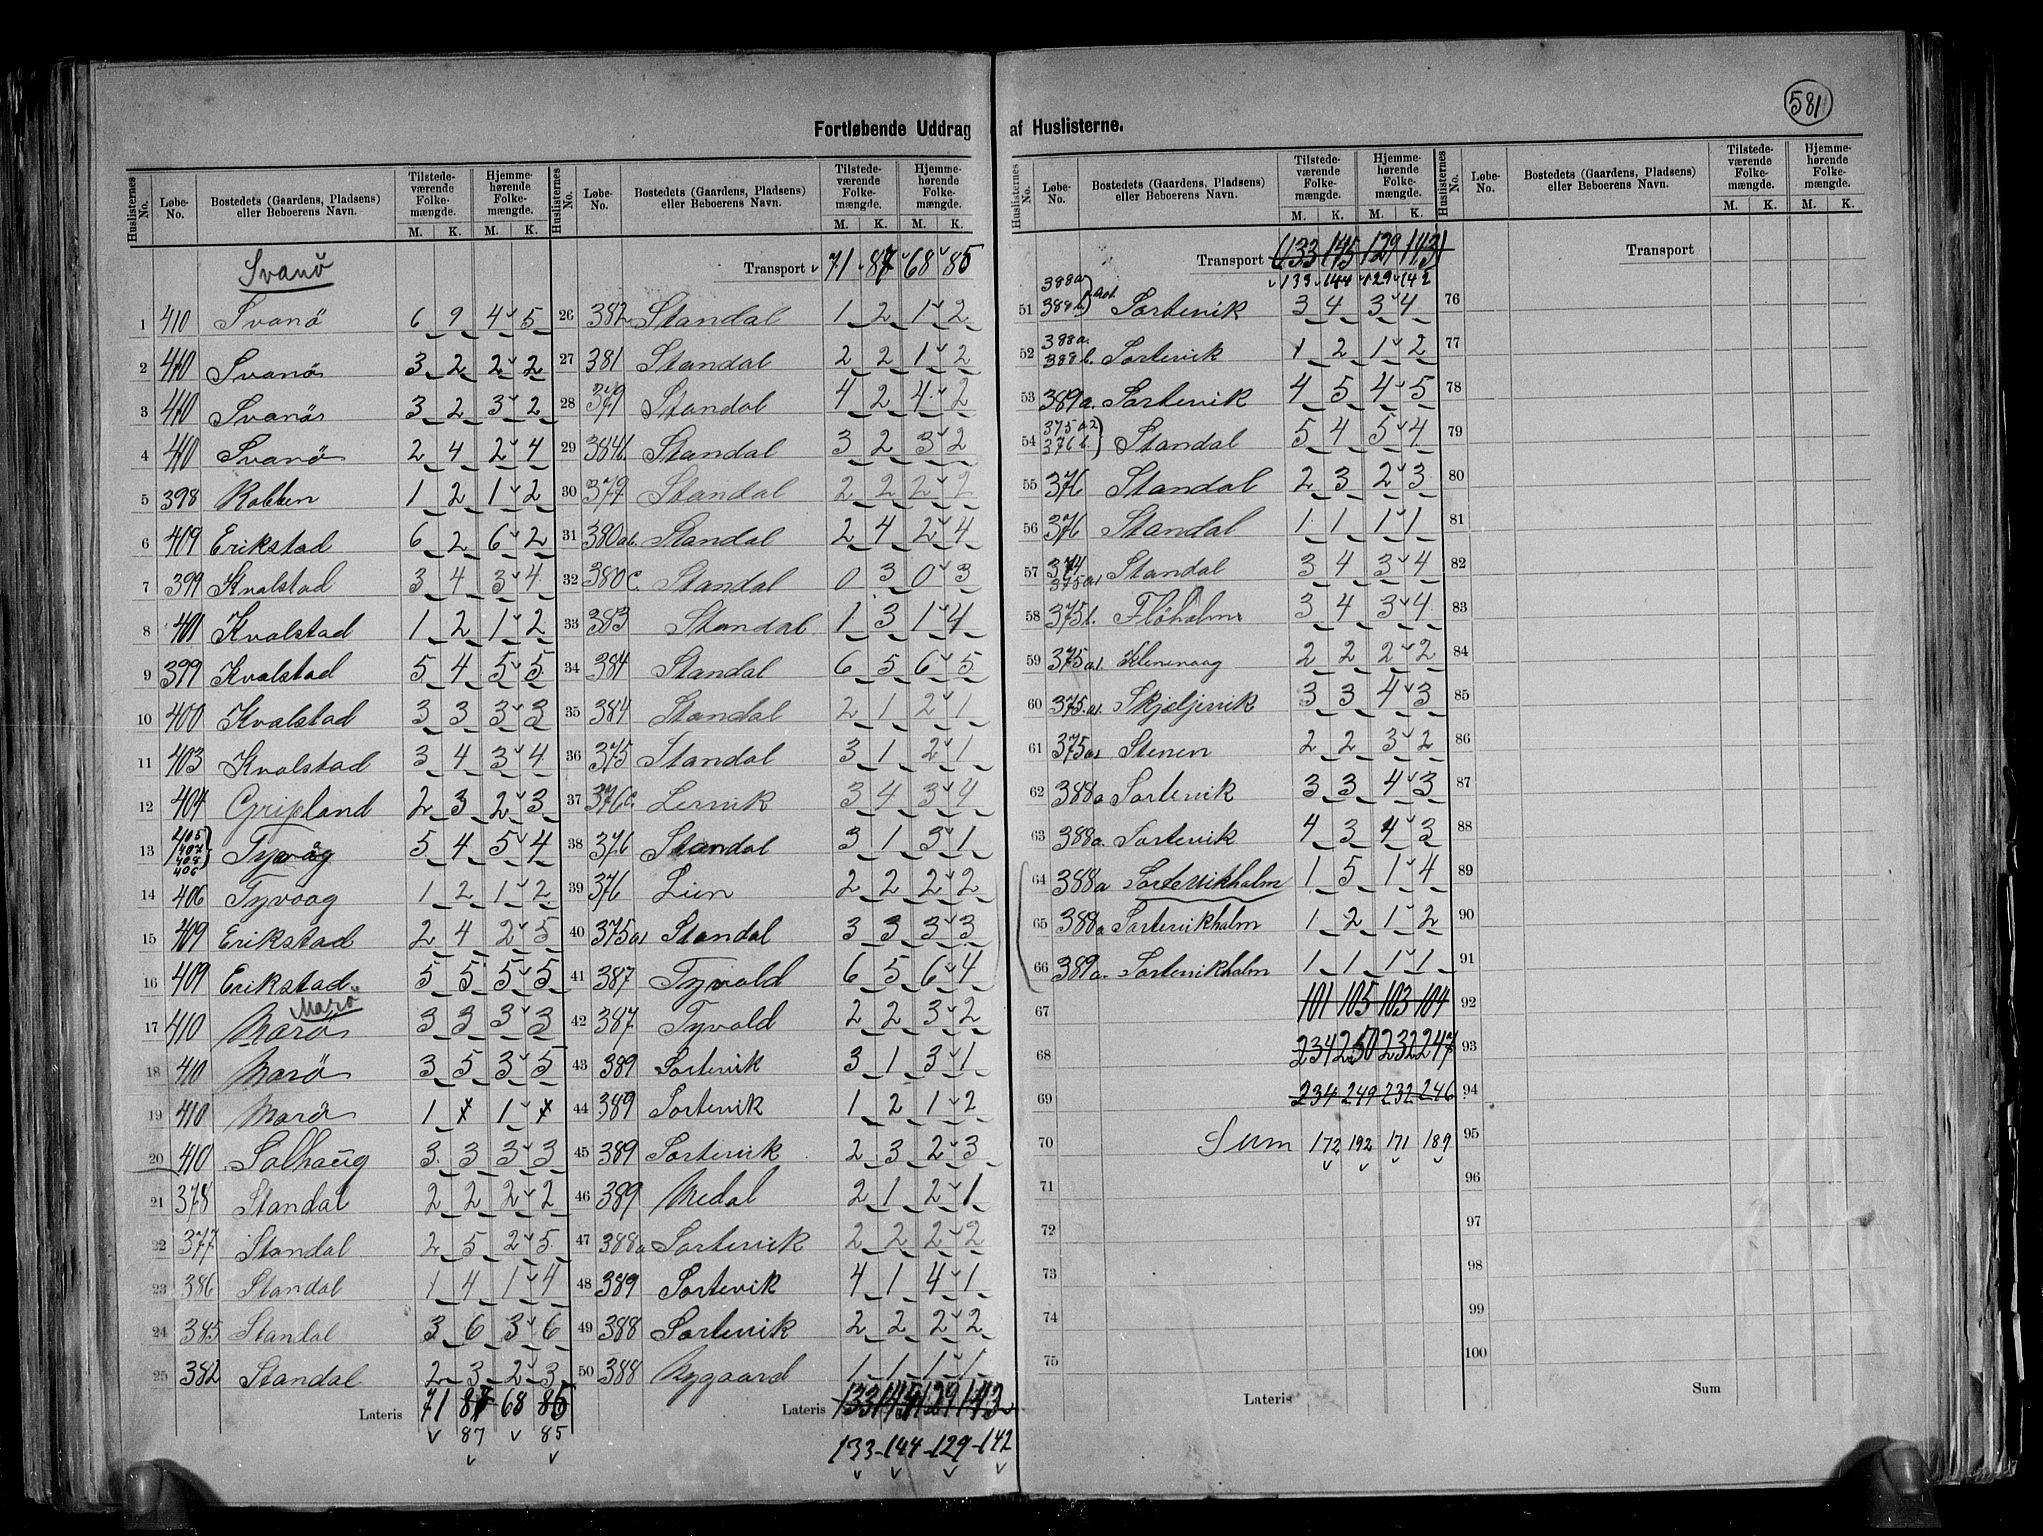 581
Fortløbende Uddrag af Huslisterne.
Huslisternes No. Løbe-No. Bostedets (Gaardens, Pladsens) eller Beboerens Navn. Tilstedeværende Folkemængde. M. K. Hjemmehørende Folkemængde. M. K.
Svanö
1 410 Svanö 6 9 4 5
2 410 Svanö 3 2 2 2
3 410 Svanö 3 2 3 2
4 410 Svanö 2 4 2 4
5 398 1 2 1 2
6 409 Erikstad 6 2 6 2
7 399 Kvalstad 3 4 3 4
8 401 Kvalstad 1 2 1 2
9 399 Kvalstad 5 4 5 5
10 400 Kvalstad 3 3 3 3
11 403 Kvalstad 3 4 3 4
12 404 Gripland 2 3 2 3
13 405 407 408 406 Tyvåg 5 4 5 4
14 406 Tyvaag 1 2 1 2
15 409 Erikstad 2 4 2 5
16 409 Erikstad 5 5 5 5
Marö
17 410 Marö 3 3 3 3
18 410 Marö 3 5 3 5
19 410 Marö 1 1
20 410 Solhaug 3 3 3 3
21 378 Standal 2 2 2 2
22 377 Standal 2 5 2 5
23 386 Standal 1 4 1 4
24 385 Standal 3 6 3 6
25 382 Standal 2 3 2 3
Lateris 71 68
87 85
Huslisternes No. Løbe-No. Bostedets (Gaardens, Pladsens) eller Beboerens Navn. Tilstedeværende Folkemængde. M. K. Hjemmehørende Folkemængde. M. K.
Transport 71 87 68 85
26 382 Standal 1 2 1 2
27 381 Standal 2 2 1 2
28 379 Standal 4 2 4 2
29 384b Standal 3 2 3 2
30 379 Standal 2 2 2 2
31 380ab. Standal 2 4 2 4
32 380c. Standal 0 3 0 3
33 383 Standal 1 3 1 4
34 384 Standal 6 5 6 5
35 384 Standal 2 1 2 1
36 375 Standal 3 1 2 1
37 376c. Lervik 3 4 3 4
38 376 Standal 3 1 3 1
39 376 Lien 2 2 2 2
40 375a1 Standal 3 3 3 3
41 387 Tyvold 6 5 6 4
42 387 Tyvold 2 2 3 2
43 389 Sortevik 3 1 3 1
44 389 Sortevik 1 2 1 2
45 389 Sortevik 2 3 2 3
46 389 Medal 2 1 2 1
47 388a Sortevik 2 2 2 2
48 389 Sortevik 4 1 4 1
49 388 Sortevik 2 2 2 2
50 388 Nygaard 1 1 1 1
Lateris 133 145 129 143
133 - 144 - 129 - 142
Huslisternes No. Løbe-No. Bostedets (Gaardens, Pladsens) eller Beboerens Navn. Tilstedeværende Folkemængde. M. K. Hjemmehørende Folkemængde. M. K.
Transport (133 145 129 143)
133 144 129 142
51 388a 388b Sortevik 3 4 3 4
52 388a. 388b. Sortevik 1 2 1 2
53 389a. Sortevik 4 5 4 5
54 375a2 376b Standal 5 4 5 4
55 376 Standal 2 3 2 3
56 376 Standal 1 1 1 1
57 374 375a1 Standal 3 4 3 4
58 375b. Flöholm 3 4 3 4
59 375a1 2 2 2 2
60 375.a1. Skjeljevik 3 3 4 3
61 375a1 Stenen 2 2 3 2
62 388a Sortevik 3 3 4 3
63 388a. Sortevik 4 3 4 3
64 388a Sortevikholm 1 5 1 4
65 388a Sortevikholm 1 2 1 2
66 389a. Sortevikholm 1 1 1 1
67 101 105 103 104
68 234 250 232 247
69 234 249 232 246
70 Sum 172 192 171 189
71
72
73
74
75
Lateris
Huslisternes No. Løbe-No. Bostedets (Gaardens, Pladsens) eller Beboerens Navn. Tilstedeværende Folkemængde. M. K. Hjemmehørende Folkemængde. M. K.
Transport
76
77
78
79
80
81
82
83
84
85
86
87
88
89
90
91
92
93
94
95
96
97
98
99
100
Sum